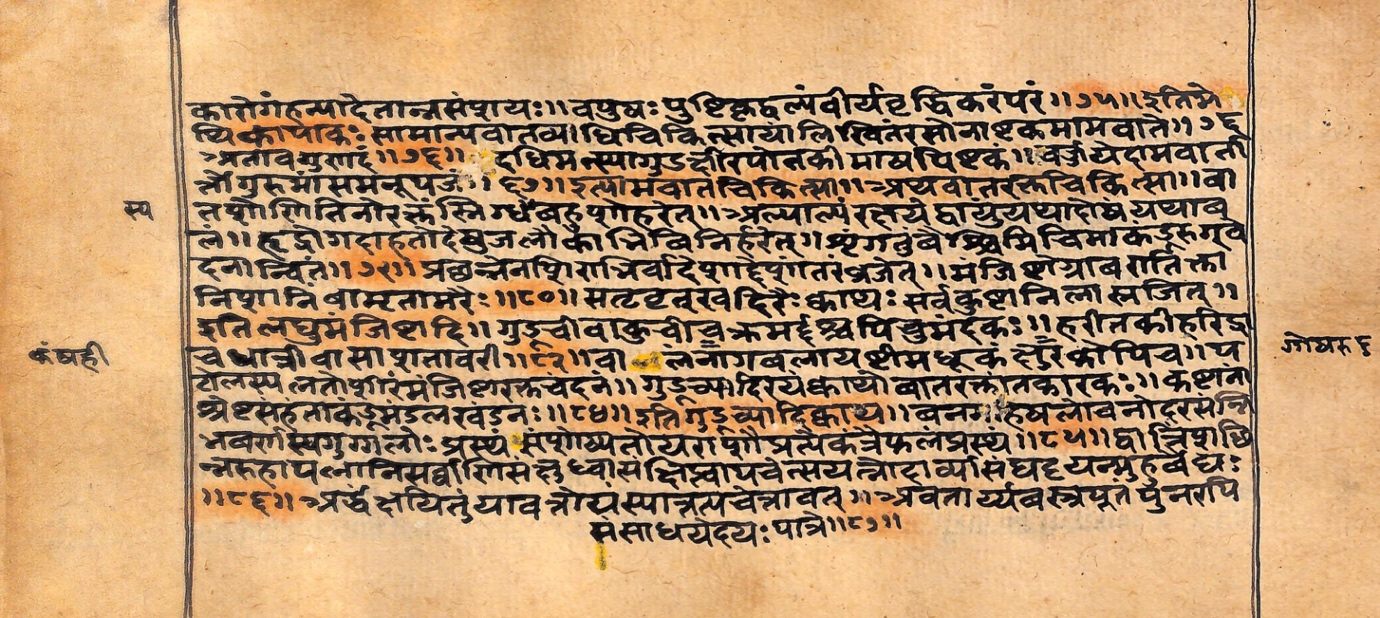 कारोगंहन्यादेतान्नसंशयः॥ वपुषः पुष्टिकृद्वल्यंवीर्यवृद्धिकरंपरं॥७५॥ इतिमे
थिकापाकः सामान्यवातव्याधिचिकित्सायालिखितंरसोनाष्टकमामवाते॥७६
अतावगुसार्द॥७६॥ दधिमत्स्यागुडक्षीरपोतकीमाषपिष्टकं॥ वर्जयेदामवाती
र्त्तोगुरुमांसमनूपजं॥६७॥ इत्यामवातचिकित्सा॥ अथवातरक्तचिकित्सा॥ वा
स्य
तशोणितिनोरक्तंस्निग्धंबहुशोहरेत्॥ अल्पाल्पंरक्षयेद्वायुंयथादोषंयथाब
लं॥ हृद्रोगदाहतोदेषुजलौकाभिविनिर्हरेत्॥ शृंगतुंबैश्चिमिचिमाकंडूरुग्वे
दनान्वितं॥७९॥ प्रछन्नेनशिराभिर्वादेशाद्देशांतरंव्रजेत्॥ मंजिष्टोग्राबरातिक्ता
निशानिंबामृतामरैः॥८०॥ सतृष्टत्खदिरैः क्वाथः सर्वकुष्टानिलास्रजित्॥
इतिलघुमंजिष्टादि॥ गुडूचीवाकुचीचक्रमर्द्दश्चपिचुमर्दकः॥ हरीतकीहरिद्रा
कंषही
चधात्रीवासाशतावरी॥८२॥ वालंनागबलायष्टीमधूकंक्षुरकोपिच॥ प
गोषरु ६
टोलस्यलतोशीरंमंजिष्टारक्तचंदनं॥ गुडूच्यादिरयंक्वाथोवातरक्तांतकारकः॥ कष्टाना
श्रेष्टसंहंताकंडूमंडलखंडनः॥८४॥ इतिगुडूच्यादिक्वाथ॥ वनगहिषलोचनोदरसन्नि
भवर्णस्यगुग्गुलोः प्रस्थं संशोध्यतोयराशौप्रत्येकत्रैफलंप्रस्थं॥८५॥ द्वात्रिंशछि
न्नरुहापलानिसर्वाणिसंक्षुध्वासंक्षिप्त्वापचेत्सयत्नोदार्व्यासंघट्टयन्मुहुर्वैद्यः
॥८६॥ अर्द्धक्षयितंयावत्तोयंस्यात्तत्पचेत्तावत्॥ अवतार्य्यवस्त्रपूतंपुनरपि
संसाधयेदयःपात्रे॥८७॥